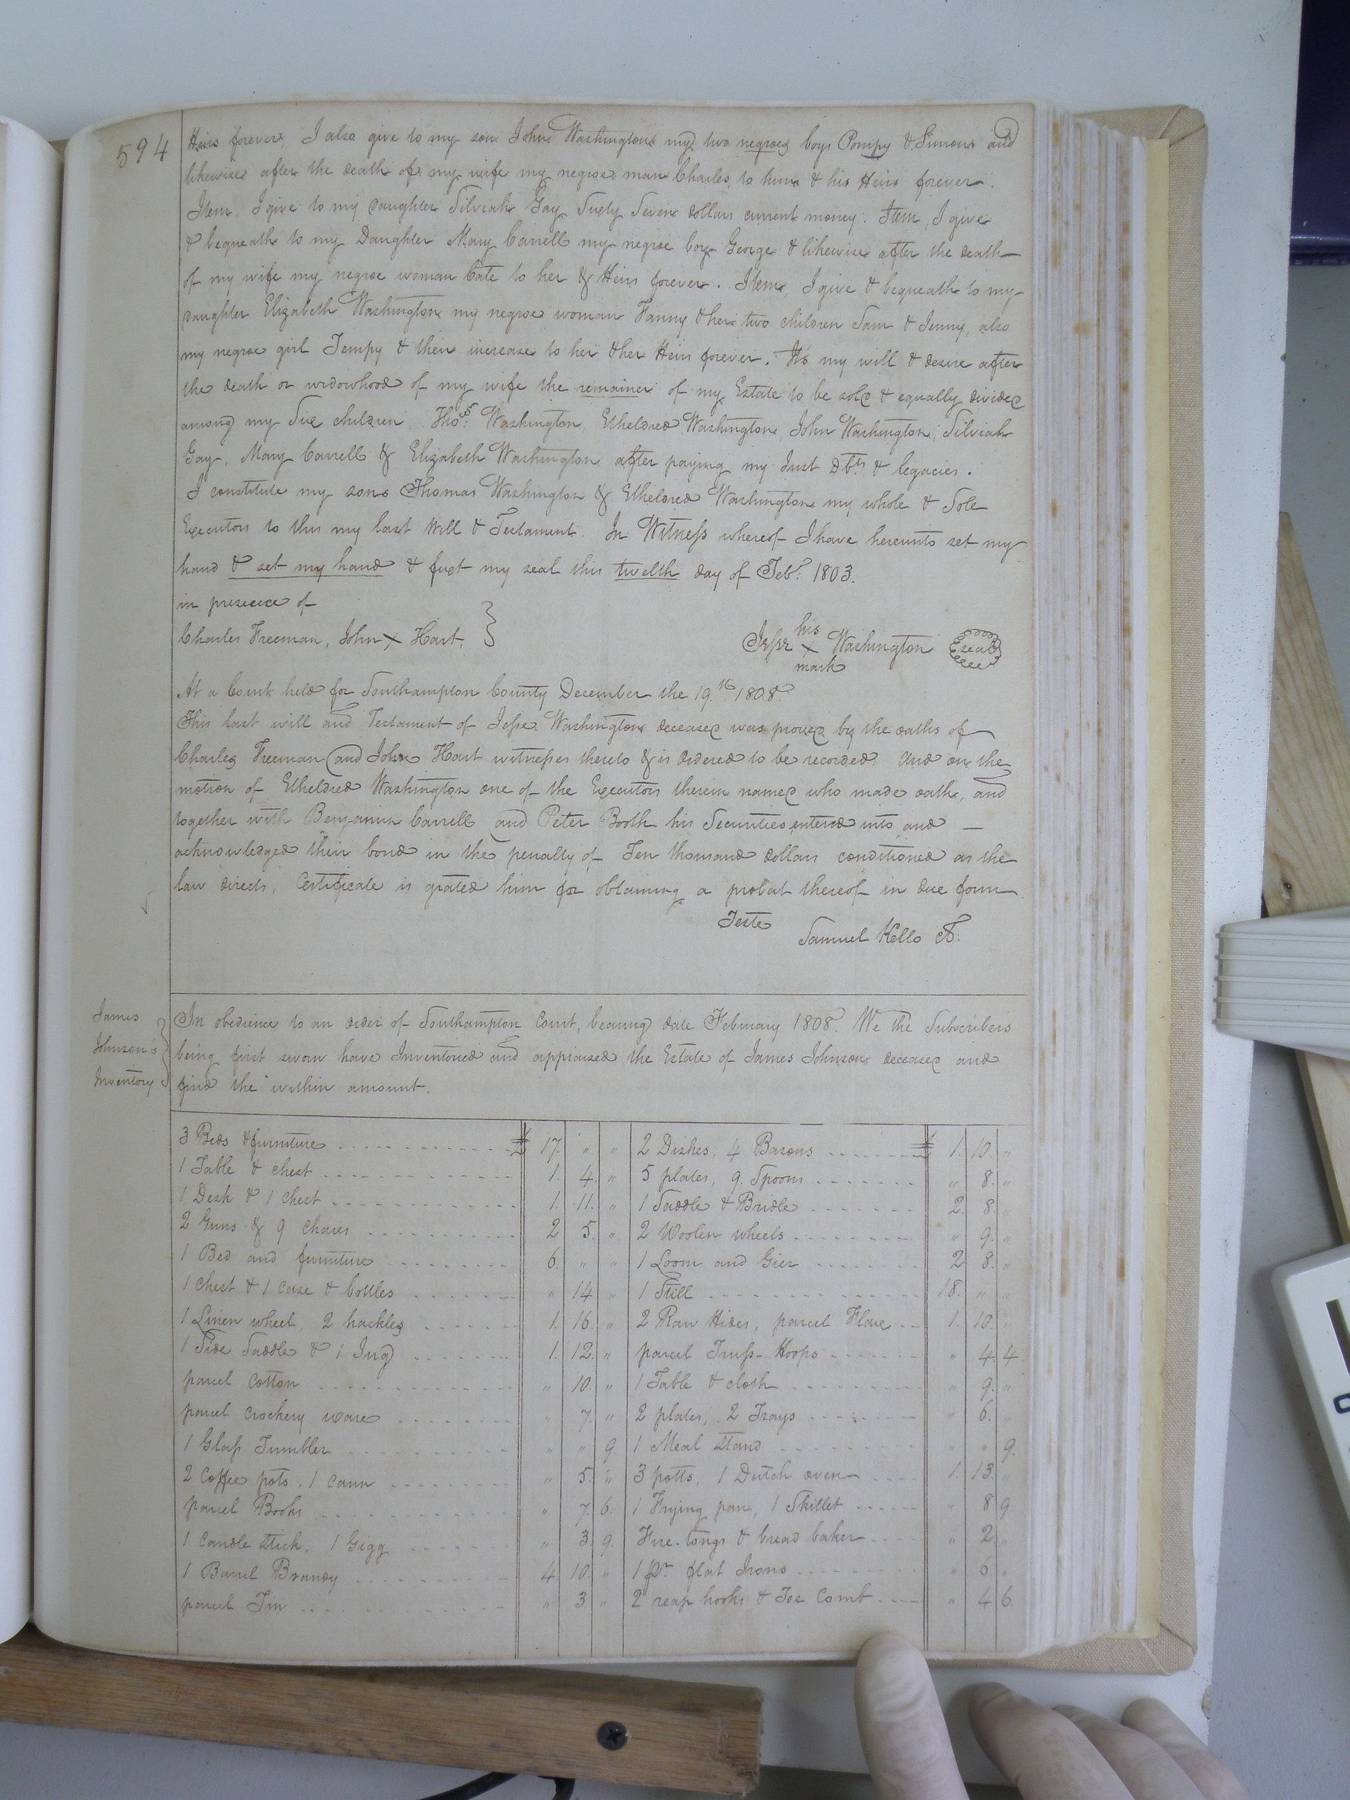 594
Heirs forever, I also give to my son John Washington my two negroes boys Pompy & Simon and
likewise after the death of my wife my negroe man Charles, to him & his Heirs forever.
Item, I give to my Daughter Silviah Gay Sixty Seven dollars current money. Item, I give
& bequeath to my Daughter Mary Carrell my negroe boy George & likewise after the death
of my wife my negroe woman Cate to her & Heirs forever. Item, I give & bequeath to my
Daughter Elizabeth Washington my negroe woman Fanny & her two children Sam & Jenny, also
my negroe girl Tempy & their increase to her & her Heirs forever. It's my will & desire after
the death or widowhood of my wife the remainer of my Estate to be sold & equally divided
among my Six children Thos. Washington, Etheldred Washington, John Washington, Silviah
Gay, Mary Carrell & Elizabeth Washington after paying my Just Dbts & legacies.
I constitute my sons Thomas Washington & Etheldred Washington my whole & Sole
Executors to this my last Will & Testament. In Witness whereof I have hereunto set my
hand & set my hand & fixt my seal this twelth day of Feb. 1803.
in presence of
Charles Freeman, John X Hart.
Jesse his X mark Washington Seal
At a Court held for Southampton County December the 19th 1808
This last will and Testament of Jesse Washington deceased was proved by the oaths of
Charles Freeman and John Hart witnesses thereto & is ordered to be recorded And on the
motion of Etheldred Washington one of the Executors therein named who made oath, and
together with Benjamin Carrell and Peter Booth his Securities entered into and
acknowledged their bond in the penalty of Ten thousand dollars conditioned as the
law directs, Certificate is grated him for obtaining a probat thereof in due form
Teste
Samuel Kello Ct.
James Johnson's Inventory
In obedience to an order of Southampton Court, bearing date February 1808. We the Subscribers
being first sworn have Inventoried and appraised the Estate of James Johnson deceased and
find the within amount.
3 Beds & furniture £ 17. " " 2 Dishes, 4 Basons £ 1. 10. "
1 Table & chest 1. 4. " 5 plates, 9 Spoons " 8. "
1 Desk & 1 chest 1. 11. " 1 Saddle & Bridle 2. 8. "
2 Guns & 9 chares 2 5. " 2 Woolen wheels " 9. "
1 Bed and furniture 6. " " 1 Loom and Gier 2 8. "
1 chest & 1 case & bottles " 14 " 1 Still 18. " "
1 Linen wheel, 2 hackles 1. 16. " 2 Raw Hides, parcel Flax 1. 10. "
1 Side Saddle & 1 Jug 1. 12. " parcel Truss-Hoops " 4. 4.
parcel Cotton " 10. " 1 Table & cloth " 9. "
parcel crockery ware " 7. " 2 plates, 2 Trays " 6. "
1 Glass Tumbler " " 9. 1 Meal Stand " " 9.
2 Coffee pots, 1 cann " 5. " 3 potts, 1 Dutch oven 1. 13. "
parcel Books " 7. 6. 1 Frying pan, 1 Skillet " 8 9
1 Candle stick, 1 Gigg " 3. 9. Fire-tongs & bread baker " 2 "
1 Barrel Brandy 4. 10. " 1 pr. flat Irons " 6 "
parcel Tin " 3. " 2 reap hooks & Comb " 4 6.